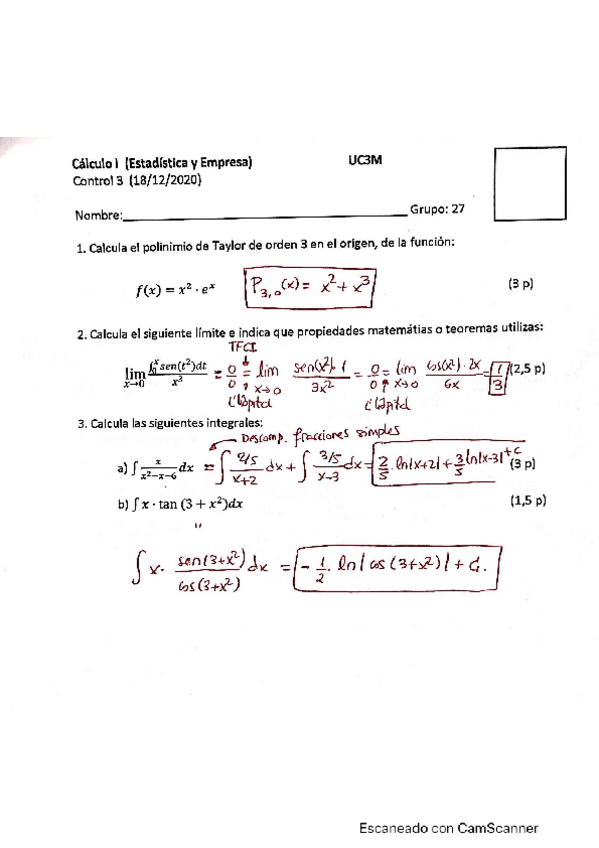 Cálculo I (Estadística y Empresa) UC3M
Control 3 (18/12/2020)
Nombre:__________ Grupo: 27
1. Calcula el polinimio de Taylor de orden 3 en el origen, de la función:
f(x) = x² · eˣ P₃,₀(x) = x² + x³ (3 p)
2. Calcula el siguiente límite e indica que propiedades matemátias o teoremas utilizas:
TFCI
lim x→0 ∫₀ˣ sen(t²)dt / x³ = 0/0 = lim x→0 sen(x²)·1 / 3x² = 0/0 = lim x→0 cos(x²)·2x / 6x = 1/3 (2,5 p)
L'Hôpital L'Hôpital
3. Calcula las siguientes integrales:
Descomp. fracciones simples
a) ∫ x/(x²−x−6) dx = ∫ (2/5)/(x+2) dx + ∫ (3/5)/(x−3) dx = 2/5 · ln|x+2| + 3/5 ln|x−3| + C (3 p)
b) ∫ x · tan (3 + x²)dx (1,5 p)
"
∫ x · sen(3+x²)/cos(3+x²) dx = − 1/2 · ln|cos(3+x²)| + C.
Escaneado con CamScanner